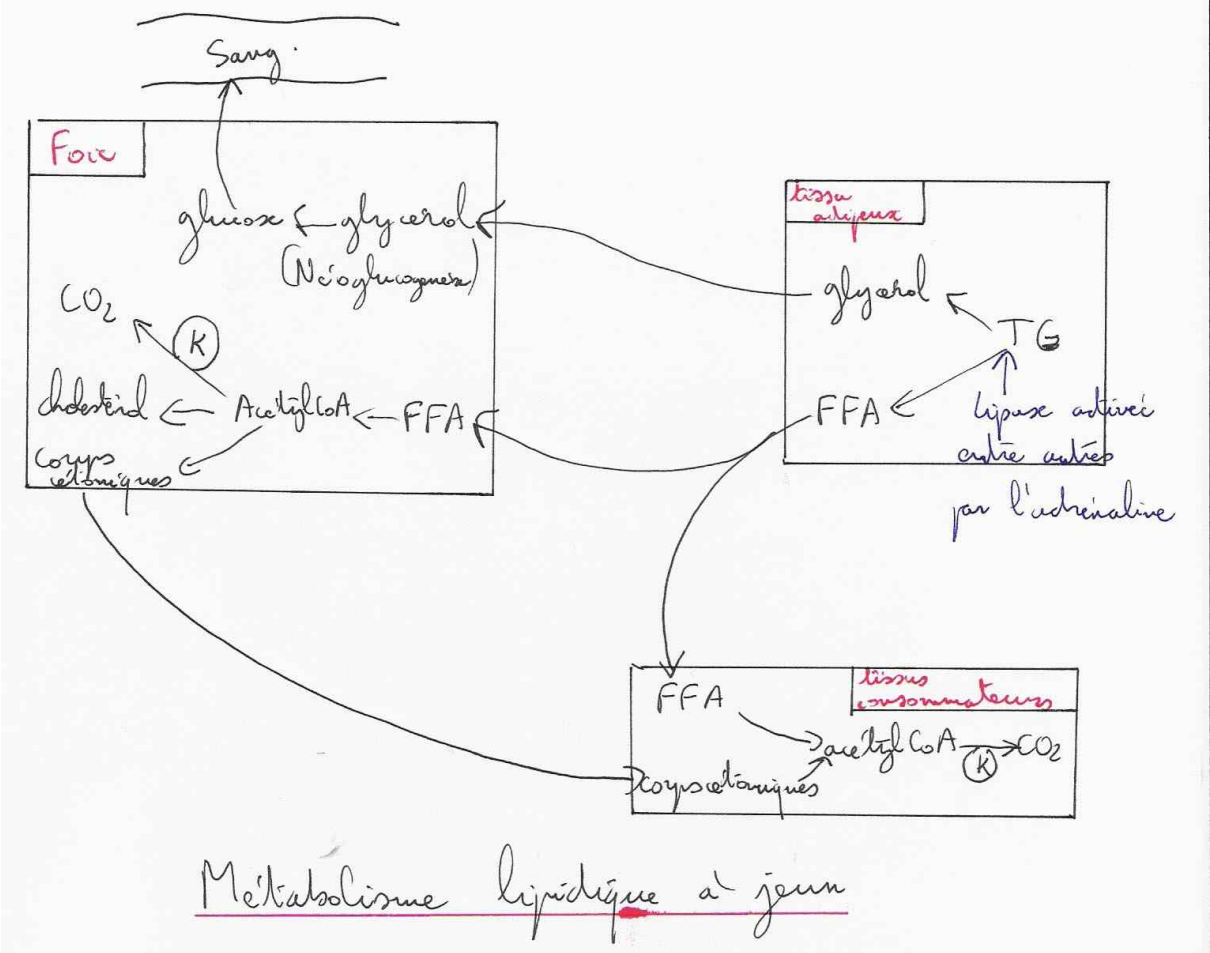 Sang.
Foie
glucose glycérol
(Néoglucogenèse)
CO2
K
cholestérol Acétyl CoA FFA
corps
cétoniques
tissu
adipeux
glycérol
TG
FFA
lipase activée
entre autres
par l'adrénaline
FFA
tissus
consommateurs
acétyl CoA CO2
K
corps cétoniques
Métabolisme lipidique à jeun